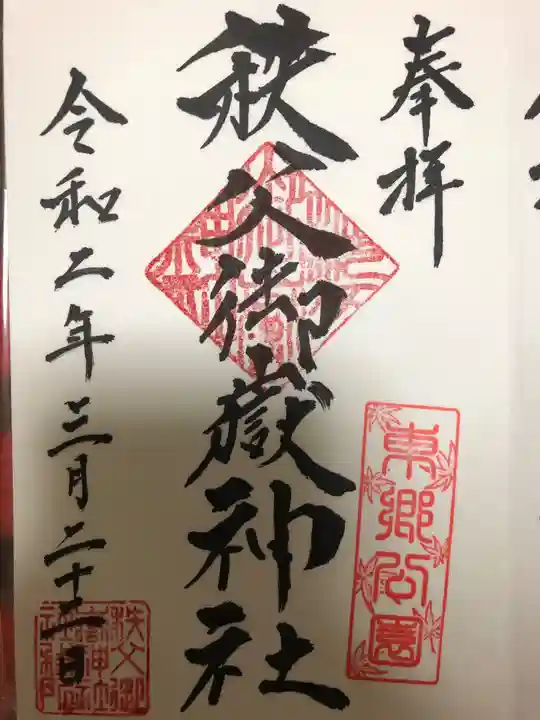 奉拝
東郷公園
秩父御嶽神社
令和二年三月二十二日